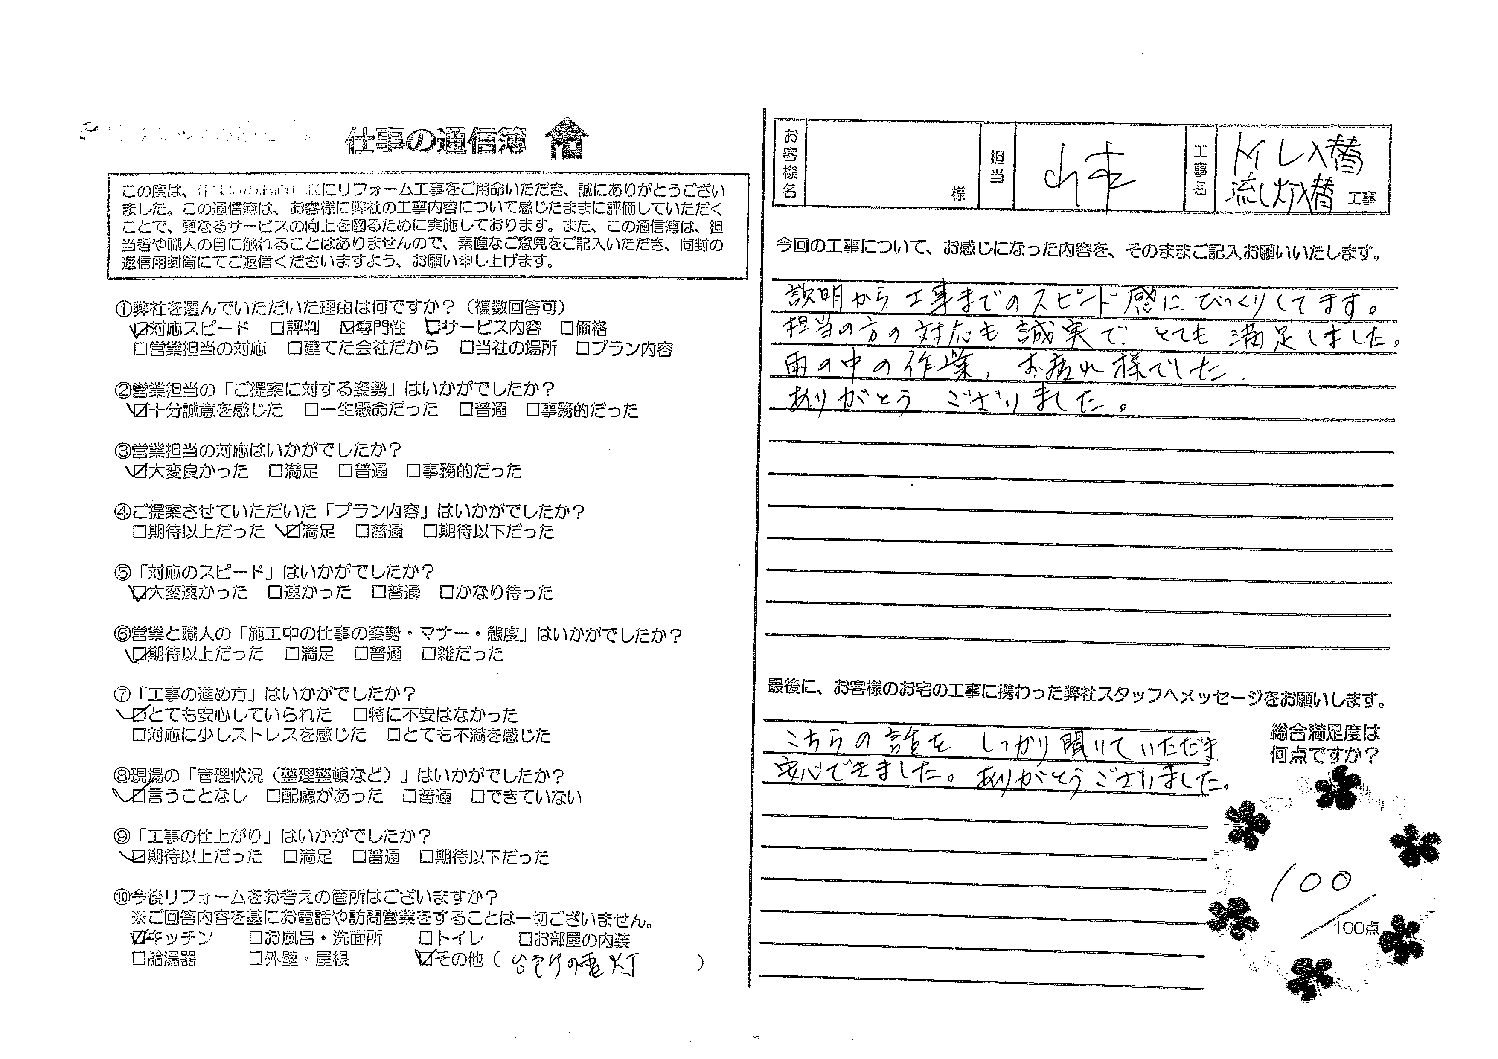 仕事の通信簿
この度は、にリフォーム工事をご用命いただき、誠にありがとうござい
ました。この通信簿は、お客様に弊社の工事内容について感じたままに評価していただく
ことで、更なるサービスの向上を図るために実施しております。また、この通信簿は、担
当者や職人の目に触れることはありませんので、率直なご意見をご記入いただき、同封の
返信用封筒にてご返信くださいますよう、お願い申し上げます。
①弊社を選んでいただいた理由は何ですか？（複数回答可）
☑対応スピード □評判 ☑専門性 ☑サービス内容 □価格
□営業担当の対応 □建てた会社だから □当社の場所 □プラン内容
②営業担当の「ご提案に対する姿勢」はいかがでしたか？
☑十分誠意を感じた □一生懸命だった □普通 □事務的だった
③営業担当の対応はいかがでしたか？
☑大変良かった □満足 □普通 □事務的だった
④ご提案させていただいた「プラン内容」はいかがでしたか？
□期待以上だった ☑満足 □普通 □期待以下だった
⑤「対応のスピード」はいかがでしたか？
☑大変速かった □速かった □普通 □かなり待った
⑥営業と職人の「施工中の仕事の姿勢・マナー・態度」はいかがでしたか？
☑期待以上だった □満足 □普通 □雑だった
⑦「工事の進め方」はいかがでしたか？
☑とても安心していられた □特に不安はなかった
□対応に少しストレスを感じた □とても不満を感じた
⑧現場の「管理状況（整理整頓など）」はいかがでしたか？
☑言うことなし □配慮があった □普通 □できていない
⑨「工事の仕上がり」はいかがでしたか？
☑期待以上だった □満足 □普通 □期待以下だった
⑩今後リフォームをお考えの箇所はございますか？
※ご回答内容を基にお電話や訪問営業をすることは一切ございません。
☑キッチン □お風呂・洗面所 □トイレ □お部屋の内装
□給湯器 □外壁・屋根 ☑その他（台所の電灯）
お客様名 様 担当 山本 工事名 トイレ入替
流し灯入替 工事
今回の工事について、お感じになった内容を、そのままご記入お願いいたします。
説明から工事までのスピード感にびっくりしてます。
担当の方の対応も誠実で とても満足しました。
雨の中の作業、お疲れ様でした.
ありがとう ございました。
最後に、お客様のお宅の工事に携わった弊社スタッフへメッセージをお願いします。
こちらの話をしっかり聞いていただき
安心できました。ありがとうございました。
総合満足度は
何点ですか？
100
/100点